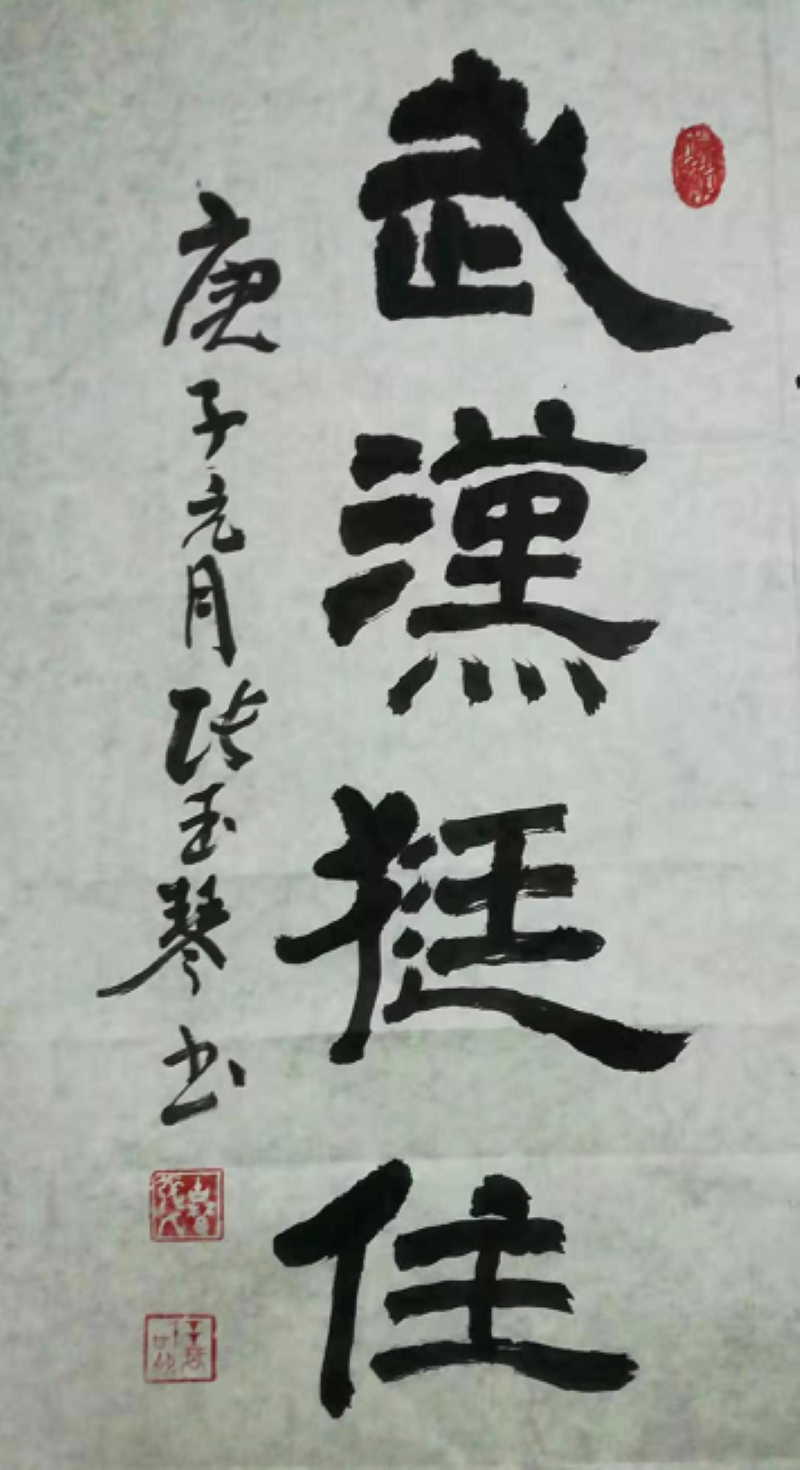 武漢挺住
庚子元月张玉琴书